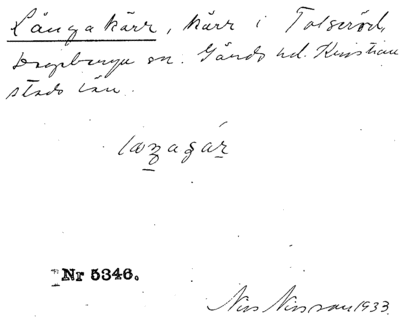 Långakärr, kärr i Tolseröd,
sn. Gärds hd. Kristian
stads län.
Nr 5346.
Nils Nilsson 1933.